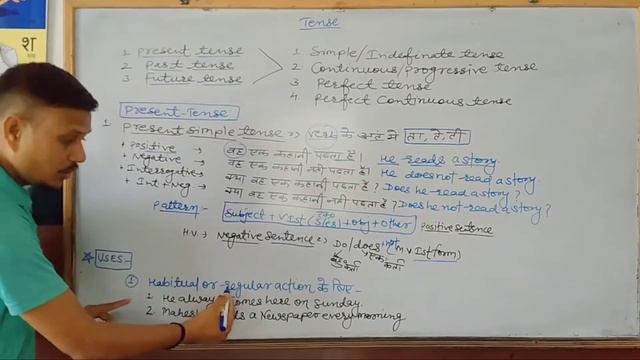 श
Tense
1. Present tense
2. Past tense
3. Future tense
1. Simple/Indefinate tense
2. Continuous/progressive tense
3. Perfect tense
4. Perfect Continuous tense
Present-Tense
1. Present simple tense → verb के अंत में ता, ते, ती
+ Positive → वह एक कहानी पढ़ता है। He reads a story.
+ Negative → वह एक कहानी नहीं पढ़ता है। He does not read a story.
+ Interrogative → क्या वह एक कहानी पढ़ता है? Does he read a story?
+ Int + Neg → क्या वह एक कहानी नहीं पढ़ता है? Does he not read a story?
Pattern - Subject + V Ist (s/es) + obj + other Positive sentence
H.V → Negative sentence → Do/does not (m v Ist form)
कर्ता एक. कर्ता
USES -
① Habitual or regular action के लिए -
1. He always comes here on Sunday.
2. a Newspaper every morning